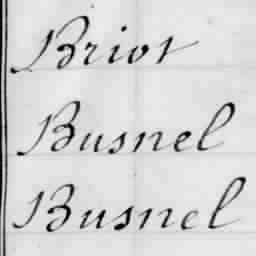 Briot
Busnel
Busnel